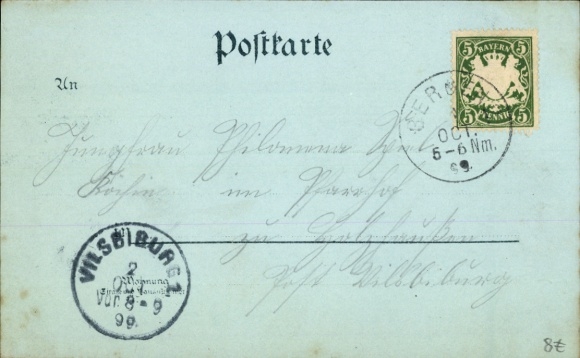 Postkarte
5 BAYERN 5
5 PFENNIG 5
An
OCT.
5-6 Nm.
99.
Jungfrau Philomena
Köchin im Pfarrhof
zu Holzhausen
Post Vilsbiburg
VILSBIBURG 1
2
OCT
Vor. 8-9
99.
Wohnung
8€